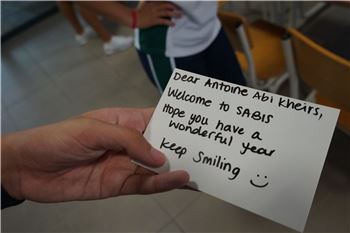 Dear Antoine Abi Kheirs,
Welcome to SABIS
Hope you have a
wonderful year
Keep Smiling